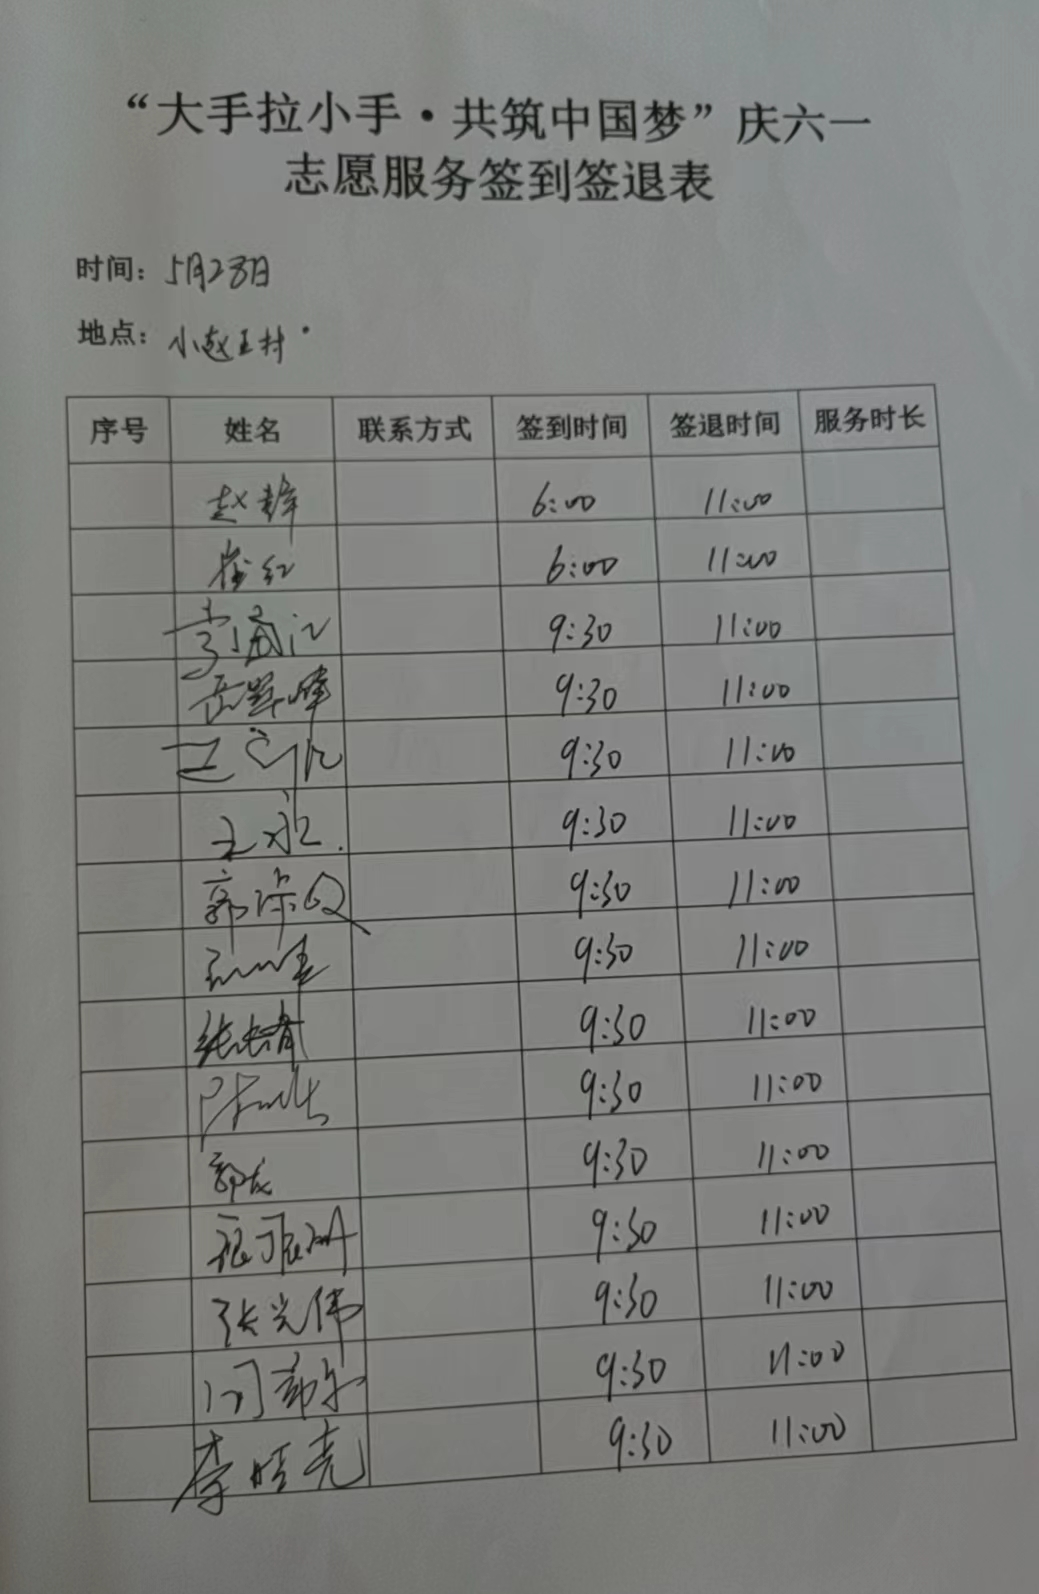 “大手拉小手·共筑中国梦”庆六一
志愿服务签到签退表
时间：5月28日
地点：小赵王村
序号 姓名 联系方式 签到时间 签退时间 服务时长
赵锋 6:00 11:00
崔红 6:00 11:00
9:30 11:00
岳 峰 9:30 11:00
王 9:30 11:00
王永 9:30 11:00
郭 9:30 11:00
9:30 11:00
张 9:30 11:00
陈 9:30 11:00
郭龙 9:30 11:00
9:30 11:00
张光伟 9:30 11:00
闫 9:30 11:00
李旺亮 9:30 11:00